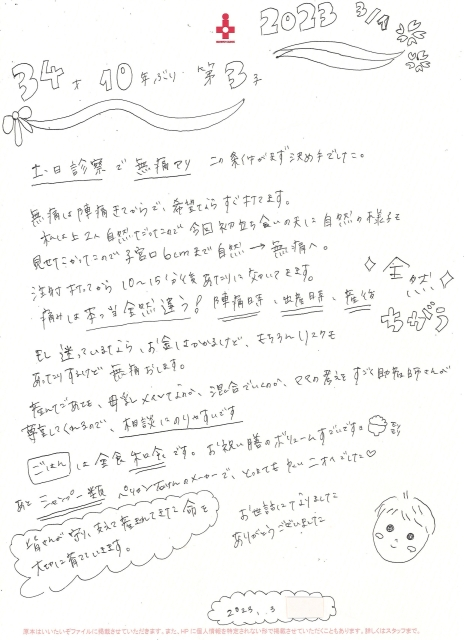 2023 3/1
34才 10年ぶり 第3子
土・日診察で無痛アリ この条件がまず決め手でした。
無痛は陣痛きてからで、希望したらすぐ打てます。
私は上2人自然だったので今回初立ち会いの夫に自然の様子を
見せたかったので子宮口6cmまで自然→無痛へ。
注射打ってから10〜15分後あたりに効いてきます。
痛みは本当全然違う! 陣痛時、出産時、産後
全然
ちがう
もし迷っているなら、お金はかかるけど、もちろんリスクも
あったりするけど無痛おします。
産んだあとも、母乳、ミルクでなのか、混合でいくのか、ママの考えをすごく助産師さんが
尊重してくれるので、相談にのりやすいです
ごはんは全食和食です。お祝い膳のボリュームすごいです。
あと シャンプー類 ペリカン石けんのメーカーで、とってもいいニオイでした♡
皆さんが守り、支えて産まれてきた命を
大切に育てていきます。
お世話になりました
ありがとうございました
2023. 3
原本はいいたいぞファイルに掲載させていただきます。また、HPに個人情報を特定されない形で掲載させていただくこともあります。詳しくはスタッフまで。